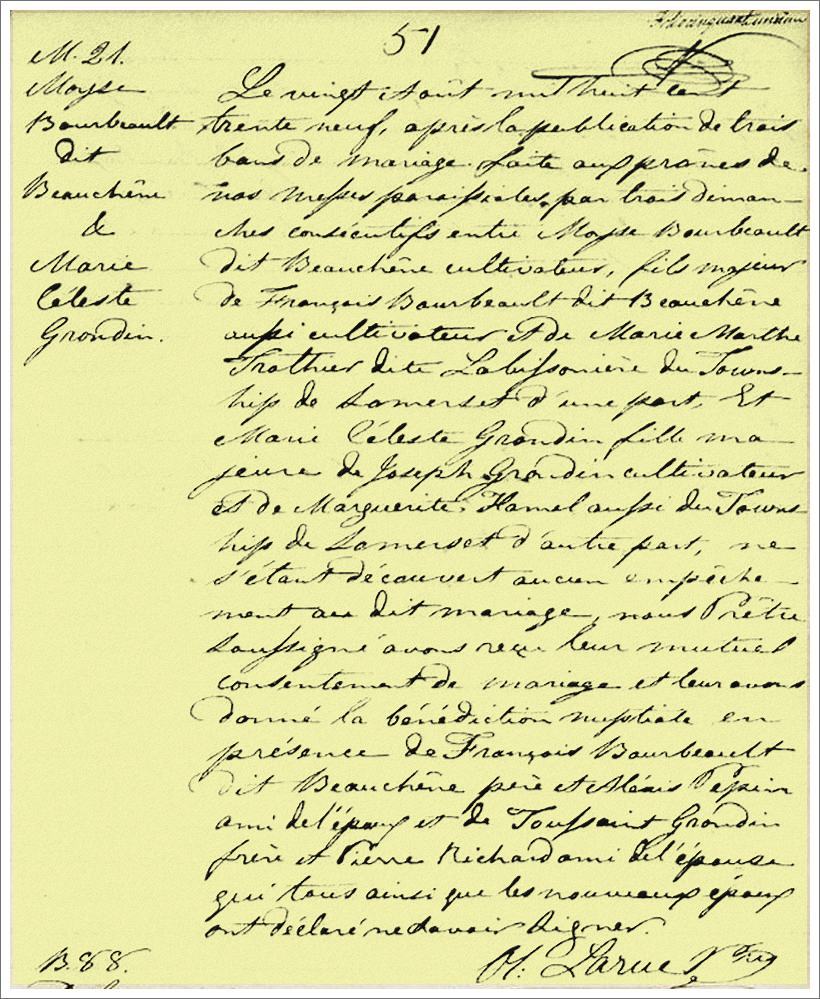 51
M. 21.
Moyse
Bourbeault
dit
Beauchêne
&
Marie
Céleste
Grondin.
Le vingt Août mil huit cent
trente neuf, après la publication de trois
bans de mariage faite aux prônes de
nos Messes paroissiales, par trois diman-
ches consécutifs entre Moyse Bourbeault
dit Beauchêne cultivateur, fils majeur
de François Bourbeault dit Beauchêne
aussi cultivateur et de Marie Marthe
Trothier dite Labissonière du Towns-
hip de Somerset d'une part, Et
Marie Céleste Grondin fille ma-
jeure de Joseph Grondin cultivateur
et de Marguerite Hamel aussi du Towns-
hip de Somerset d'autre part, ne
s'étant découvert aucun empêche-
ment au dit mariage, nous Prêtre
Soussigné avons reçu leur mutuel
consentement de mariage et leur avons
donné la bénédiction nuptiale en
présence de François Bourbeault
dit Beauchêne père et Alexis Pepin
ami de l'époux et de Toussaint Grondin
frère et Pierre Richard ami de l'épouse
qui tous ainsi que les nouveaux époux
ont déclaré ne savoir signer.
Larue Ptre
B. 88.